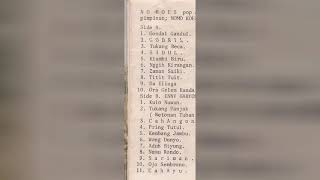 NO KOES pop
pimpinan; NOMO KOE
Side A.
1. Gondal Gandul.
2. G O B R I L .
3. Tukang Beca.
4. S I D U L .
5. Klambi Biru.
6. Nggih Kirangan.
7. Zaman Saiki.
8. Titik Tuit.
9. Da Slinga
10. Ora Gelem Randa
Side B.
1. Kulo Nuwun.
2. Tukang Panjak
( Betotan Tuban
3. C a h A n g o n
4. Pring Tutul.
5. Kembang Jambu.
6. Wong Donyo.
7. Aduh Biyung.
8. Nemu Rondo.
9. S a r i m a n .
10. Ojo Sembrono.
11. C a h A y u .